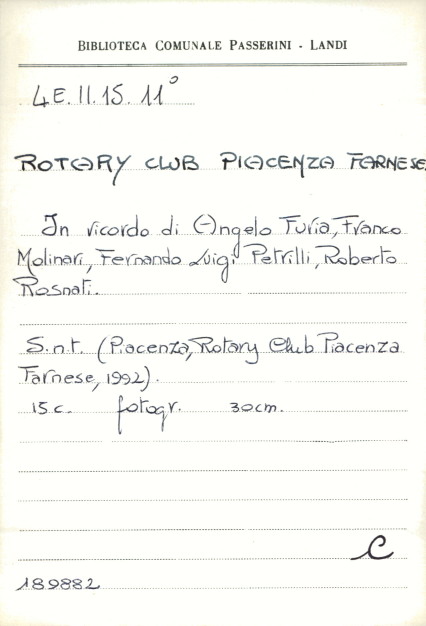 BIBLIOTECA COMUNALE PASSERINI - LANDI
4E.II.15.11°
ROTARY CLUB PIACENZA FARNESE
In ricordo di Angelo Furia, Franco
Molinari, Fernando Luigi Petrilli, Roberto
Rosnati.
S.n.t. (Piacenza, Rotary Club Piacenza
Farnese, 1992).
15 c. fotogr. 30cm.
C
189882